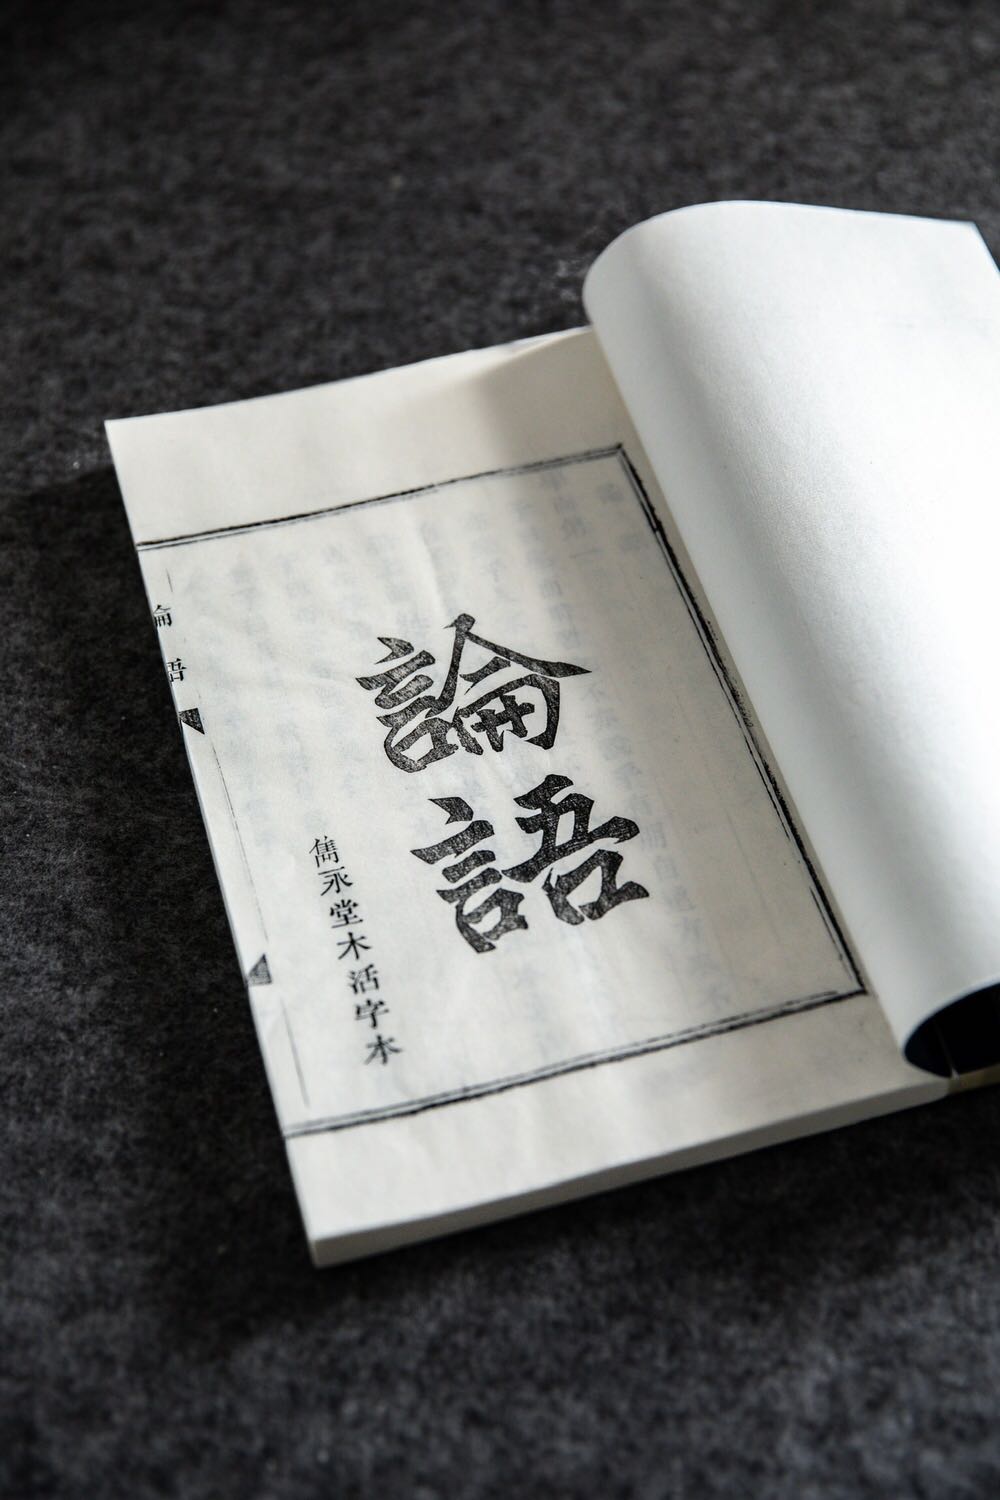 論語
雋永堂木活字本
論語